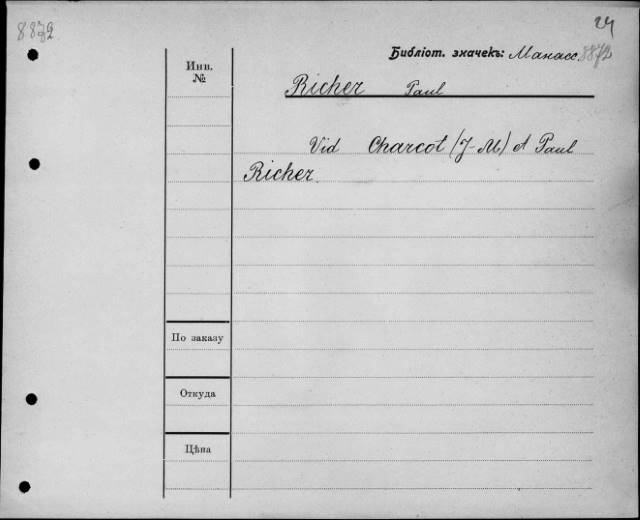 8872
24
Библіот. значекъ: Манасс. 8872
Инв.
№
Richer Paul
Vid Charcot (J-M.) et Paul
Richer.
По заказу
Откуда
Цѣна